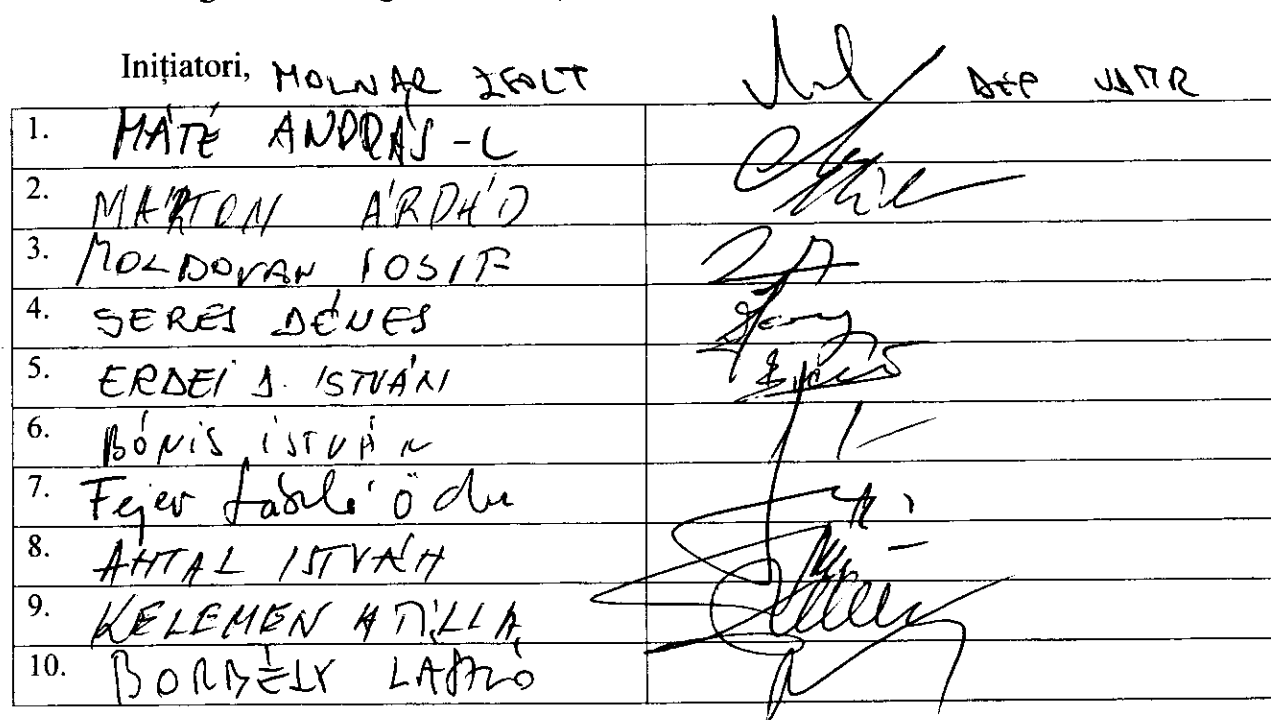 Inițiatori, MOLNAR ZSOLT DEP UDMR
1. MÁTÉ ANDRÁS-L
2. MÁRTON ÁRPÁD
3. MOLDOVAN IOSIF
4. SERES DÉNES
5. ERDEI D. ISTVÁN
6. BÓNIS ISTVÁN
7. Fejér László Ödön
8. ANTAL ISTVÁN
9. KELEMEN ATILLA
10. BORBÉLY LÁSZLÓ